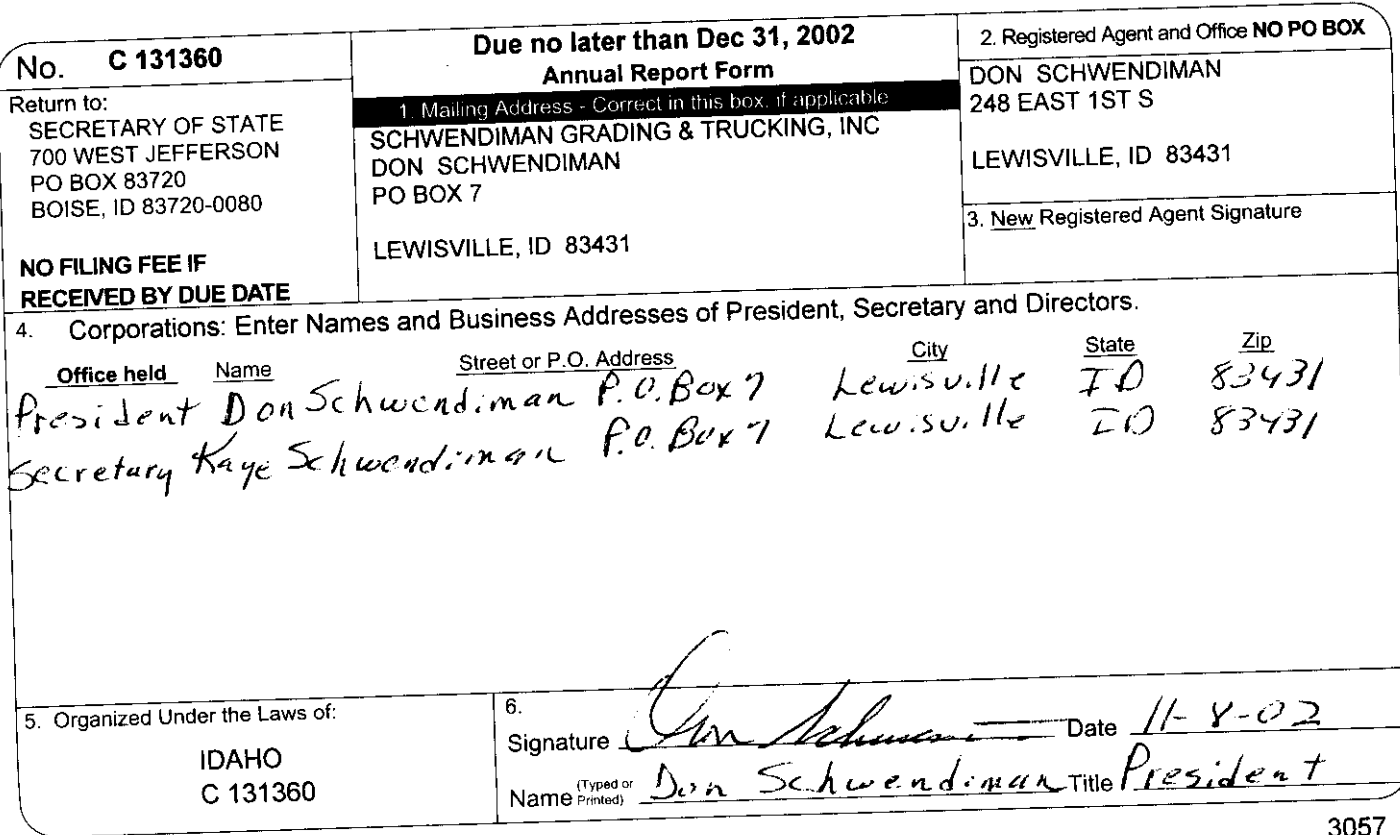 No. C 131360
Return to:
SECRETARY OF STATE
700 WEST JEFFERSON
PO BOX 83720
BOISE, ID 83720-0080
NO FILING FEE IF
RECEIVED BY DUE DATE
Due no later than Dec 31, 2002
Annual Report Form
1. Mailing Address - Correct in this box, if applicable
SCHWENDIMAN GRADING & TRUCKING, INC
DON SCHWENDIMAN
PO BOX 7
LEWISVILLE, ID 83431
2. Registered Agent and Office NO PO BOX
DON SCHWENDIMAN
248 EAST 1ST S
LEWISVILLE, ID 83431
3. New Registered Agent Signature
4. Corporations: Enter Names and Business Addresses of President, Secretary and Directors.
Office held Name Street or P.O. Address City State Zip
President Don Schwendiman P.O. Box 7 Lewisville ID 83431
Secretary Kaye Schwendiman P.O. Box 7 Lewisville ID 83431
5. Organized Under the Laws of:
IDAHO
C 131360
6.
Signature Don Date 11-8-02
Name (Typed or Printed) Don Schwendiman Title President
3057